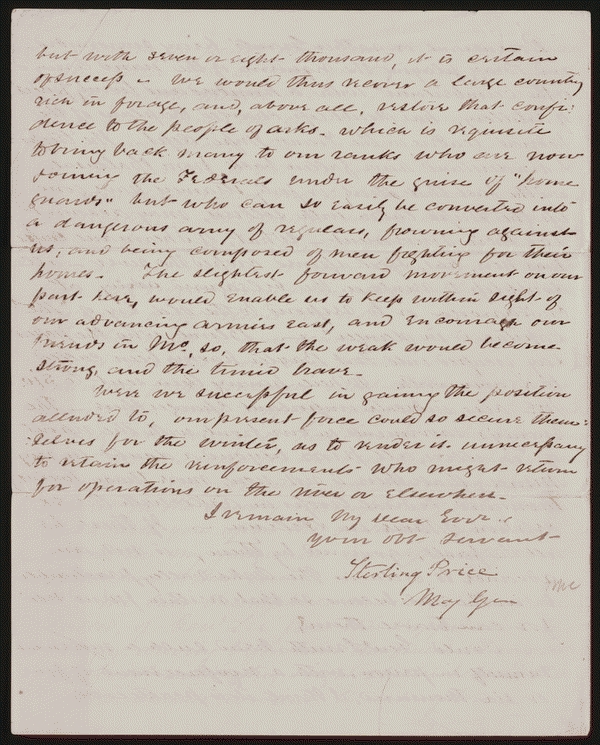 but with seven or eight thousand, it is certain
of success - we would thus recover a large country
rich in forage, and, above all, restore that confi-
dence to the people of arks. which is requisite
to bring back many to our ranks who are now
joining the Federals under the guise of "home
guards" but who can so easily be converted into
a dangerous army of regulars, frowning against
us, and being composed of men fighting for their
homes. The slightest forward movement on our
part here, would enable us to keep within sight of
our advancing armies east, and encourage our
friends in Mo, so, that the weak would become
strong, and the timid brave.
Were we successful in gaining the position
alluded to, our present force could so secure them-
selves for the winter, as to render it unnecessary
to retain the reinforcements who might return
for operations on the river or elsewhere.
I remain My dear Govr.
your obt servant
Sterling Price
Maj Gen